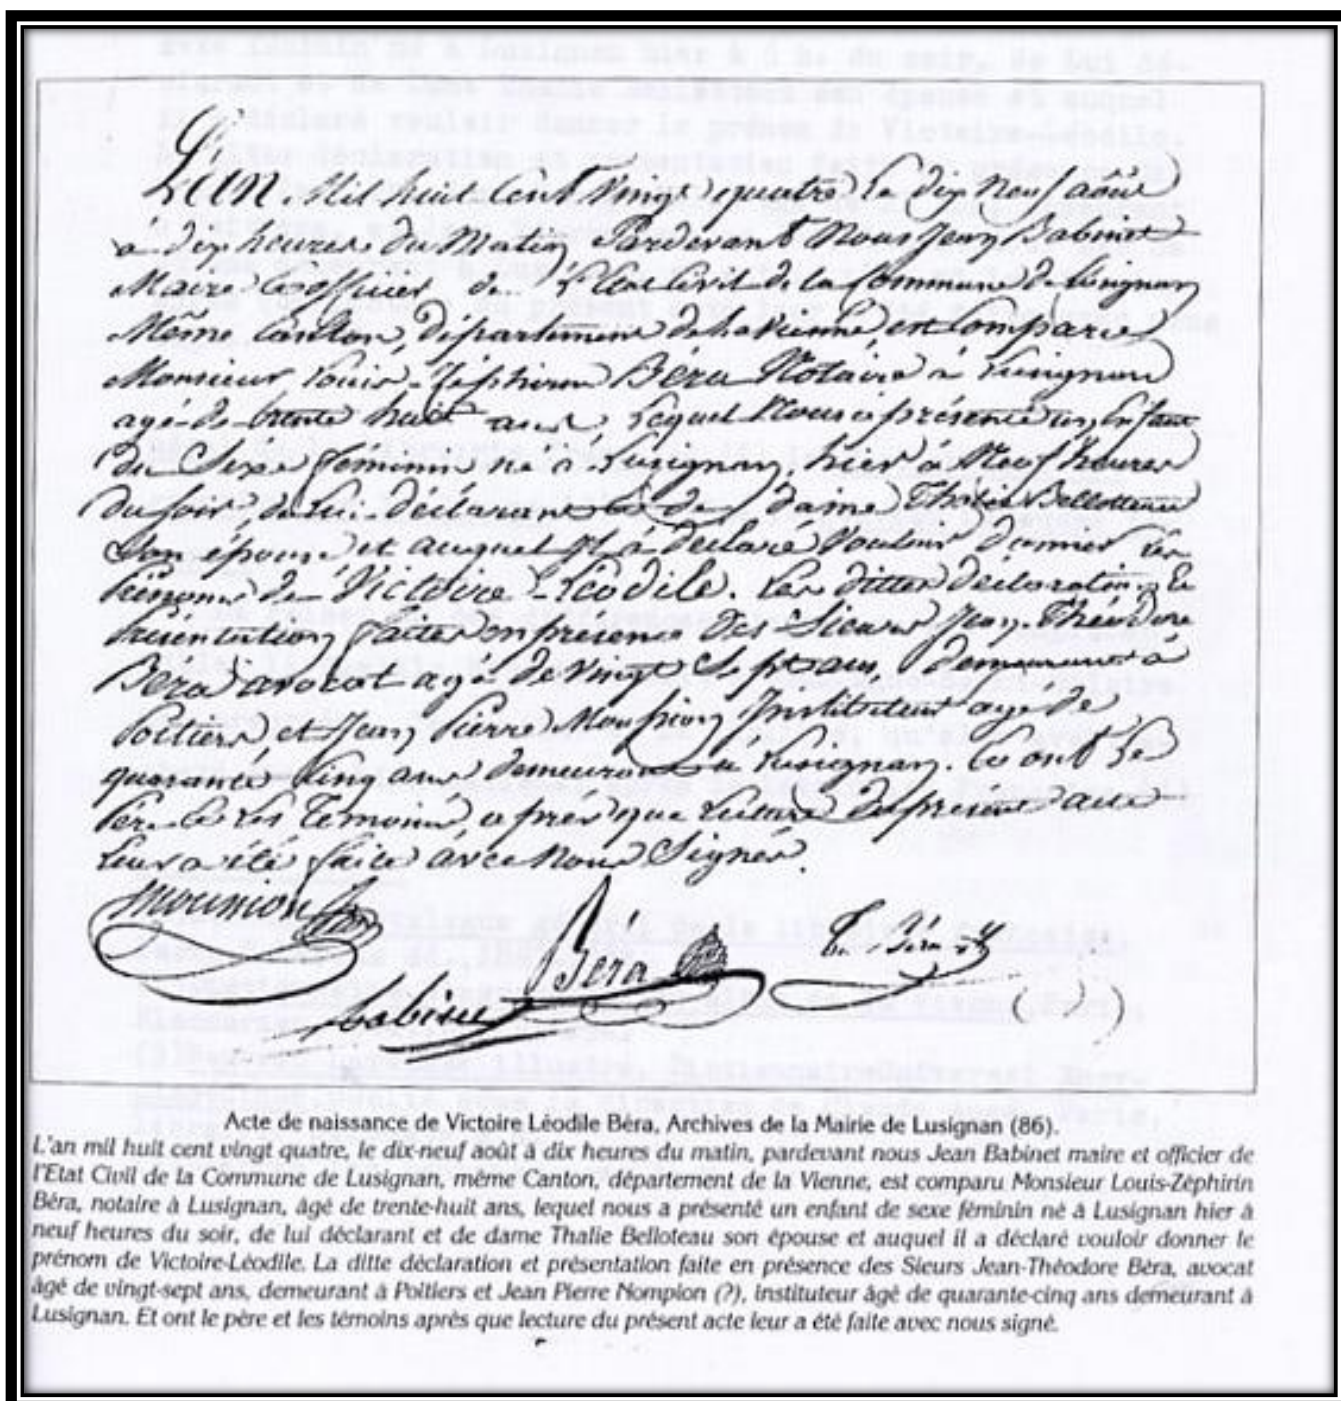 L'an Mil huit Cent Vingt quatre le dix Neuf août
à dix heures du Matin Pardevant Nous Jean Babinet
Maire & officier de l'Etat Civil de la Commune de Lusignan
Même Canton, département de la Vienne, est Comparu
Monsieur Louis-Zéphirin Béra Notaire à Lusignan
agé de trente huit ans Lequel Nous a présenté un Enfant
du Sexe feminin né à Lusignan, hier à Neuf heures
du soir, de lui déclarant & de dame Thalie Belloteau
Son épouse et auquel Il a déclaré Vouloir donner les
Prénoms de Victoire-Léodile. Les dittes déclaration &
présentation faites en présence Des Sieurs Jean-Théodore
Béra avocat agé de Vingt Sept ans, demeurant à
Poitiers, et Jean Pierre Instituteur agé de
quarante Cinq ans demeurant à Lusignan. Et ont le
Père & les Temoins, après que Lecture du présent acte
Leur a été faite avec Nous Signés.
Béra
Th. Béra
Babinet
Acte de naissance de Victoire Léodile Béra, Archives de la Mairie de Lusignan (86).
L'an mil huit cent vingt quatre, le dix-neuf août à dix heures du matin, pardevant nous Jean Babinet maire et officier de
l'Etat Civil de la Commune de Lusignan, même Canton, département de la Vienne, est comparu Monsieur Louis-Zéphirin
Béra, notaire à Lusignan, âgé de trente-huit ans, lequel nous a présenté un enfant de sexe féminin né à Lusignan hier à
neuf heures du soir, de lui déclarant et de dame Thalie Belloteau son épouse et auquel il a déclaré vouloir donner le
prénom de Victoire-Léodile. La ditte déclaration et présentation faite en présence des Sieurs Jean-Théodore Béra, avocat
âgé de vingt-sept ans, demeurant à Poitiers et Jean Pierre Nompion (?), instituteur âgé de quarante-cinq ans demeurant à
Lusignan. Et ont le père et les témoins après que lecture du présent acte leur a été faite avec nous signé.